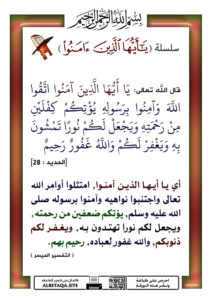 بسم الله الرحمن الرحيم
سلسلة ﴿ يَٰٓأَيُّهَا ٱلَّذِينَ ءَامَنُوا۟ ﴾
قال الله تعالى: يَا أَيُّهَا الَّذِينَ آمَنُوا اتَّقُوا
اللَّهَ وَآمِنُوا بِرَسُولِهِ يُؤْتِكُمْ كِفْلَيْنِ
مِنْ رَحْمَتِهِ وَيَجْعَلْ لَكُمْ نُورًا تَمْشُونَ
بِهِ وَيَغْفِرْ لَكُمْ وَاللَّهُ غَفُورٌ رَحِيمٌ
[الحديد : 28]
أي يا أيها الذين آمنوا، امتثلوا أوامر الله
تعالى واجتنبوا نواهيه وآمنوا برسوله صلى
الله عليه وسلم، يؤتكم ضعفين من رحمته،
ويجعل لكم نورا تهتدون به، ويغفر لكم
ذنوبكم، والله غفور لعباده، رحيم بهم.
( التفسير الميسر )
احرص على طباعة
ونشر هذه الورقة
ALBETAQA.SITE